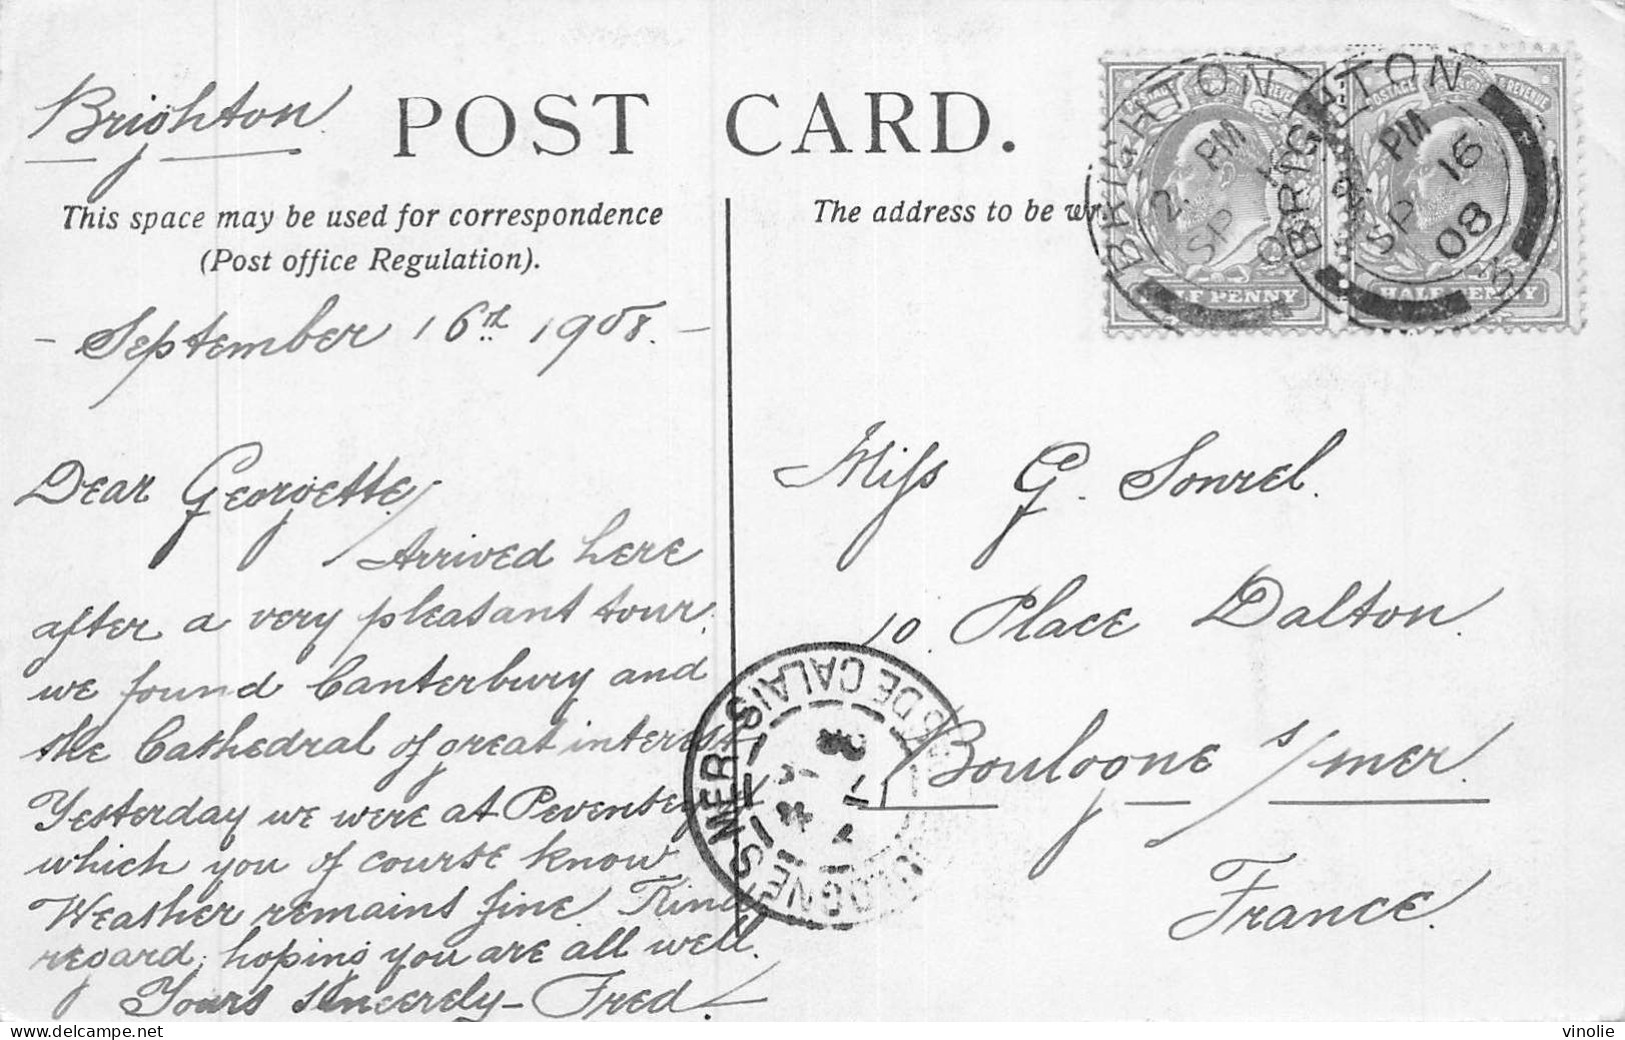 Brighton
POST CARD.
This space may be used for correspondence
(Post office Regulation).
The address to be wr
BRIGHTON
2. PM
SP
BRIGHTON
PM
SP 16
08
POSTAGE REVENUE
HALF PENNY
HALF PENNY
- September 16th 1908. -
Dear Georgette,
Arrived here
after a very pleasant tour.
we found Canterbury and
the Cathedral of great interest
Yesterday we were at Pevensey
which you of course know
Weather remains fine. Kind
regard, hoping you are all well.
Yours sincerely - Fred.
Miss G. Sonrel.
10. Place Dalton.
Boulogne s/mer.
France.
BOULOGNE S MER PAS DE CALAIS
delcampe.net
vinolie